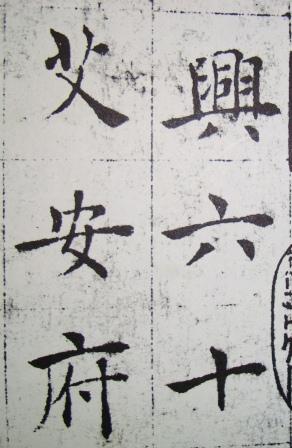 興六十
艾安府